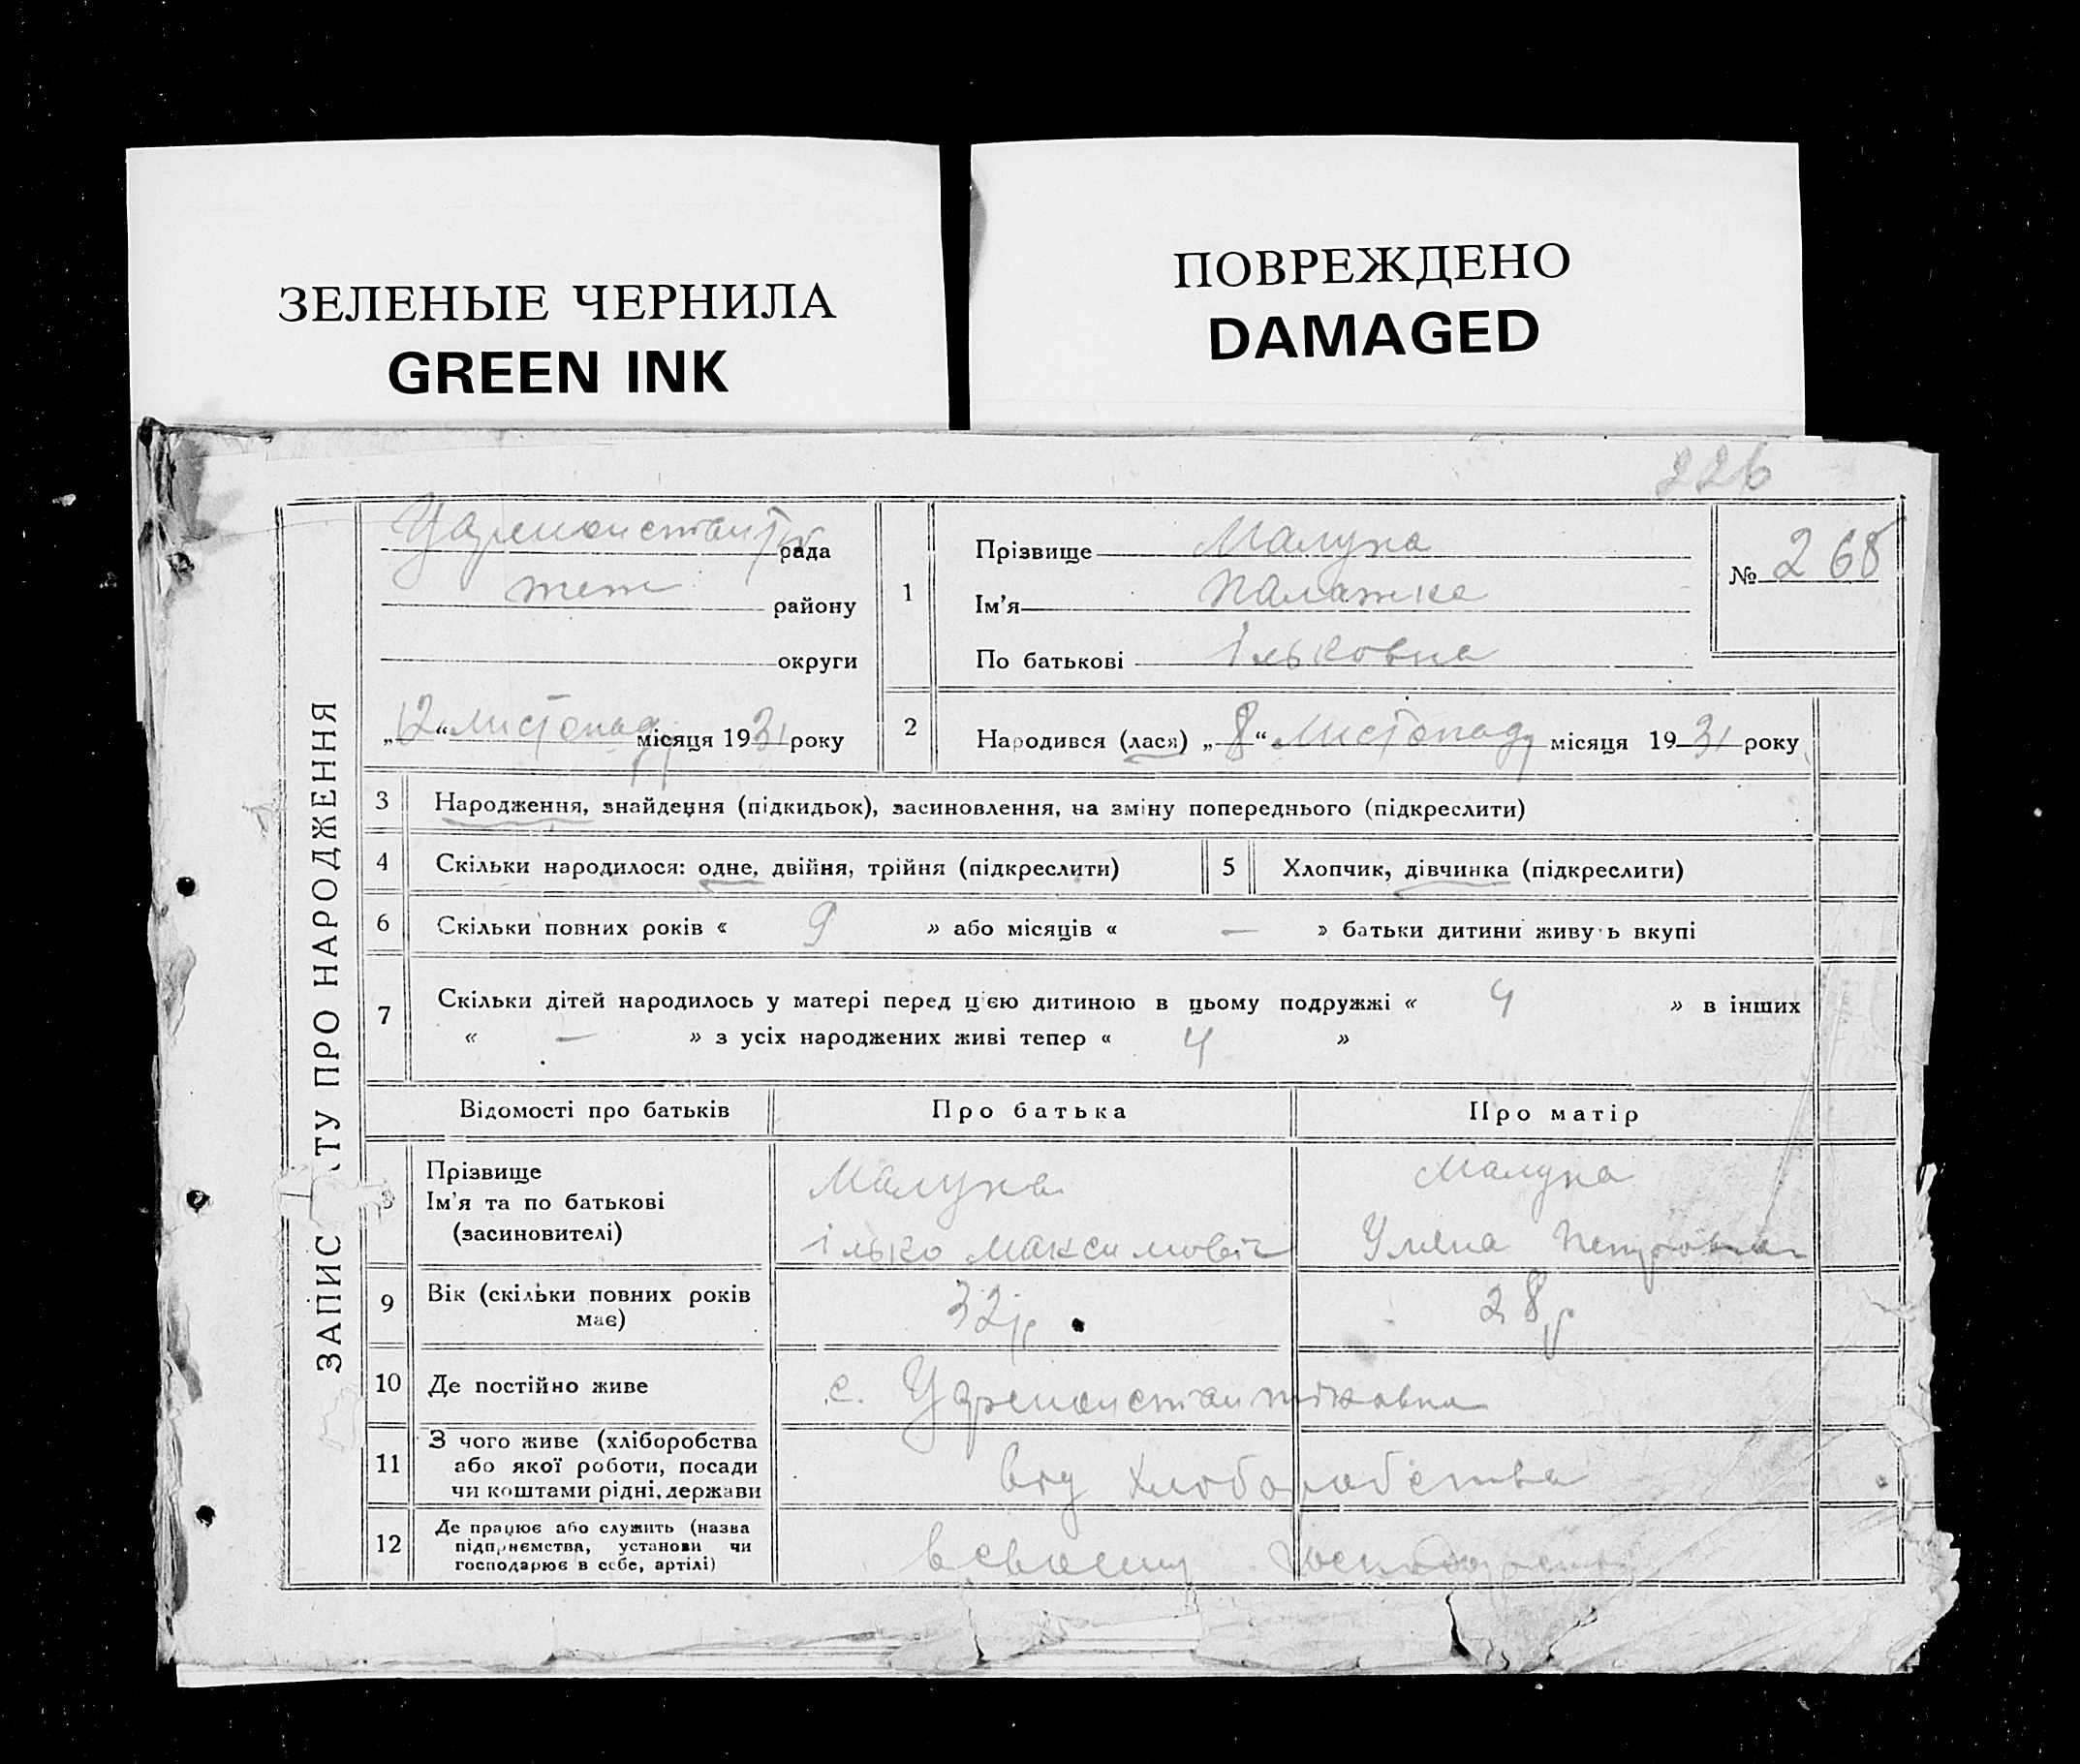 ЗЕЛЕНЫЕ ЧЕРНИЛА
GREEN INK
ПОВРЕЖДЕНО
DAMAGED
226
ЗАПИС ТУ ПРО НАРОДЖЕННЯ
рада
теж району
округи
„12“ листопаду місяця 1931 року
1
Прізвище Малуха
Ім'я Палажка
По батькові Ільковна
№ 268
2
Народився (лася) „8“ Листопаду місяця 1931 року
3 Народження, знайдення (підкидьок), засиновлення, на зміну попереднього (підкреслити)
4 Скільки народилося: одне, двійня, трійня (підкреслити) 5 Хлопчик, дівчинка (підкреслити)
6 Скільки повних років « 9 » або місяців « — » батьки дитини живу ь вкупі
7 Скільки дітей народилось у матері перед цією дитиною в цьому подружжі « 4 » в інших
« — » з усіх народжених живі тепер « 4 »
Відомості про батьків Про батька Про матір
8 Прізвище Малуха Малуха
Ім'я та по батькові
(засиновителі) Ілько Максимович Уляна Петровна
9 Вік (скільки повних років
має) 32 р 28 р
10 Де постійно живе с. Цареконстантіновна
11 З чого живе (хліборобства
або якої роботи, посади
чи коштами рідні, держави від хлоборобства
12 Де працює або служить (назва
підприємства, установи чи
господарює в себе, артілі) в своему